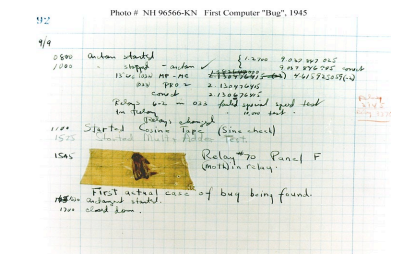 Photo # NH 96566-KN First Computer "Bug", 1945
92
9/9
0800 antan started
1000 " stopped - antan ✓ { 1.2700 9.037 847 025
9.037 846 995 correct
13" uc (032) MP - MC 4.615925059 (-2)
(033) PRO 2 2.130476415
correct 2.130676415
Relays 6-2 in 033 failed special speed test
in relay " 10.000 test.
Relays changed
1100 Started Cosine Tape (Sine check)
1525 Started Multi Adder Test.
1545 Relay #70 Panel F
(moth) in relay.
First actual case of bug being found.
antangent started.
1700 closed down.